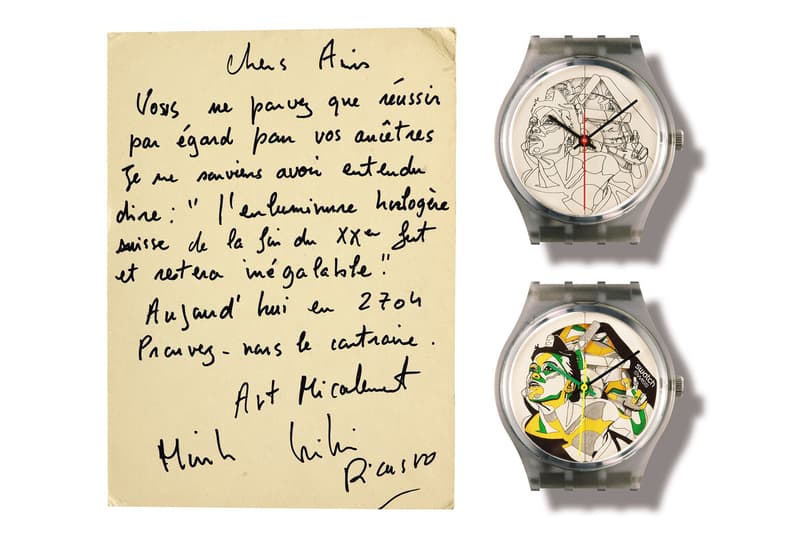 Chers Amis
Vous ne pouvez que réussir
par égard pour vos ancêtres
Je me souviens avoir entendu
dire : " l'enluminure horlogère
suisse de la fin du XXem fut
et restera inégalable "
Aujourd'hui en 2704
Prouvez-nous le contraire.
Art Micalement
Ricasso
swatch